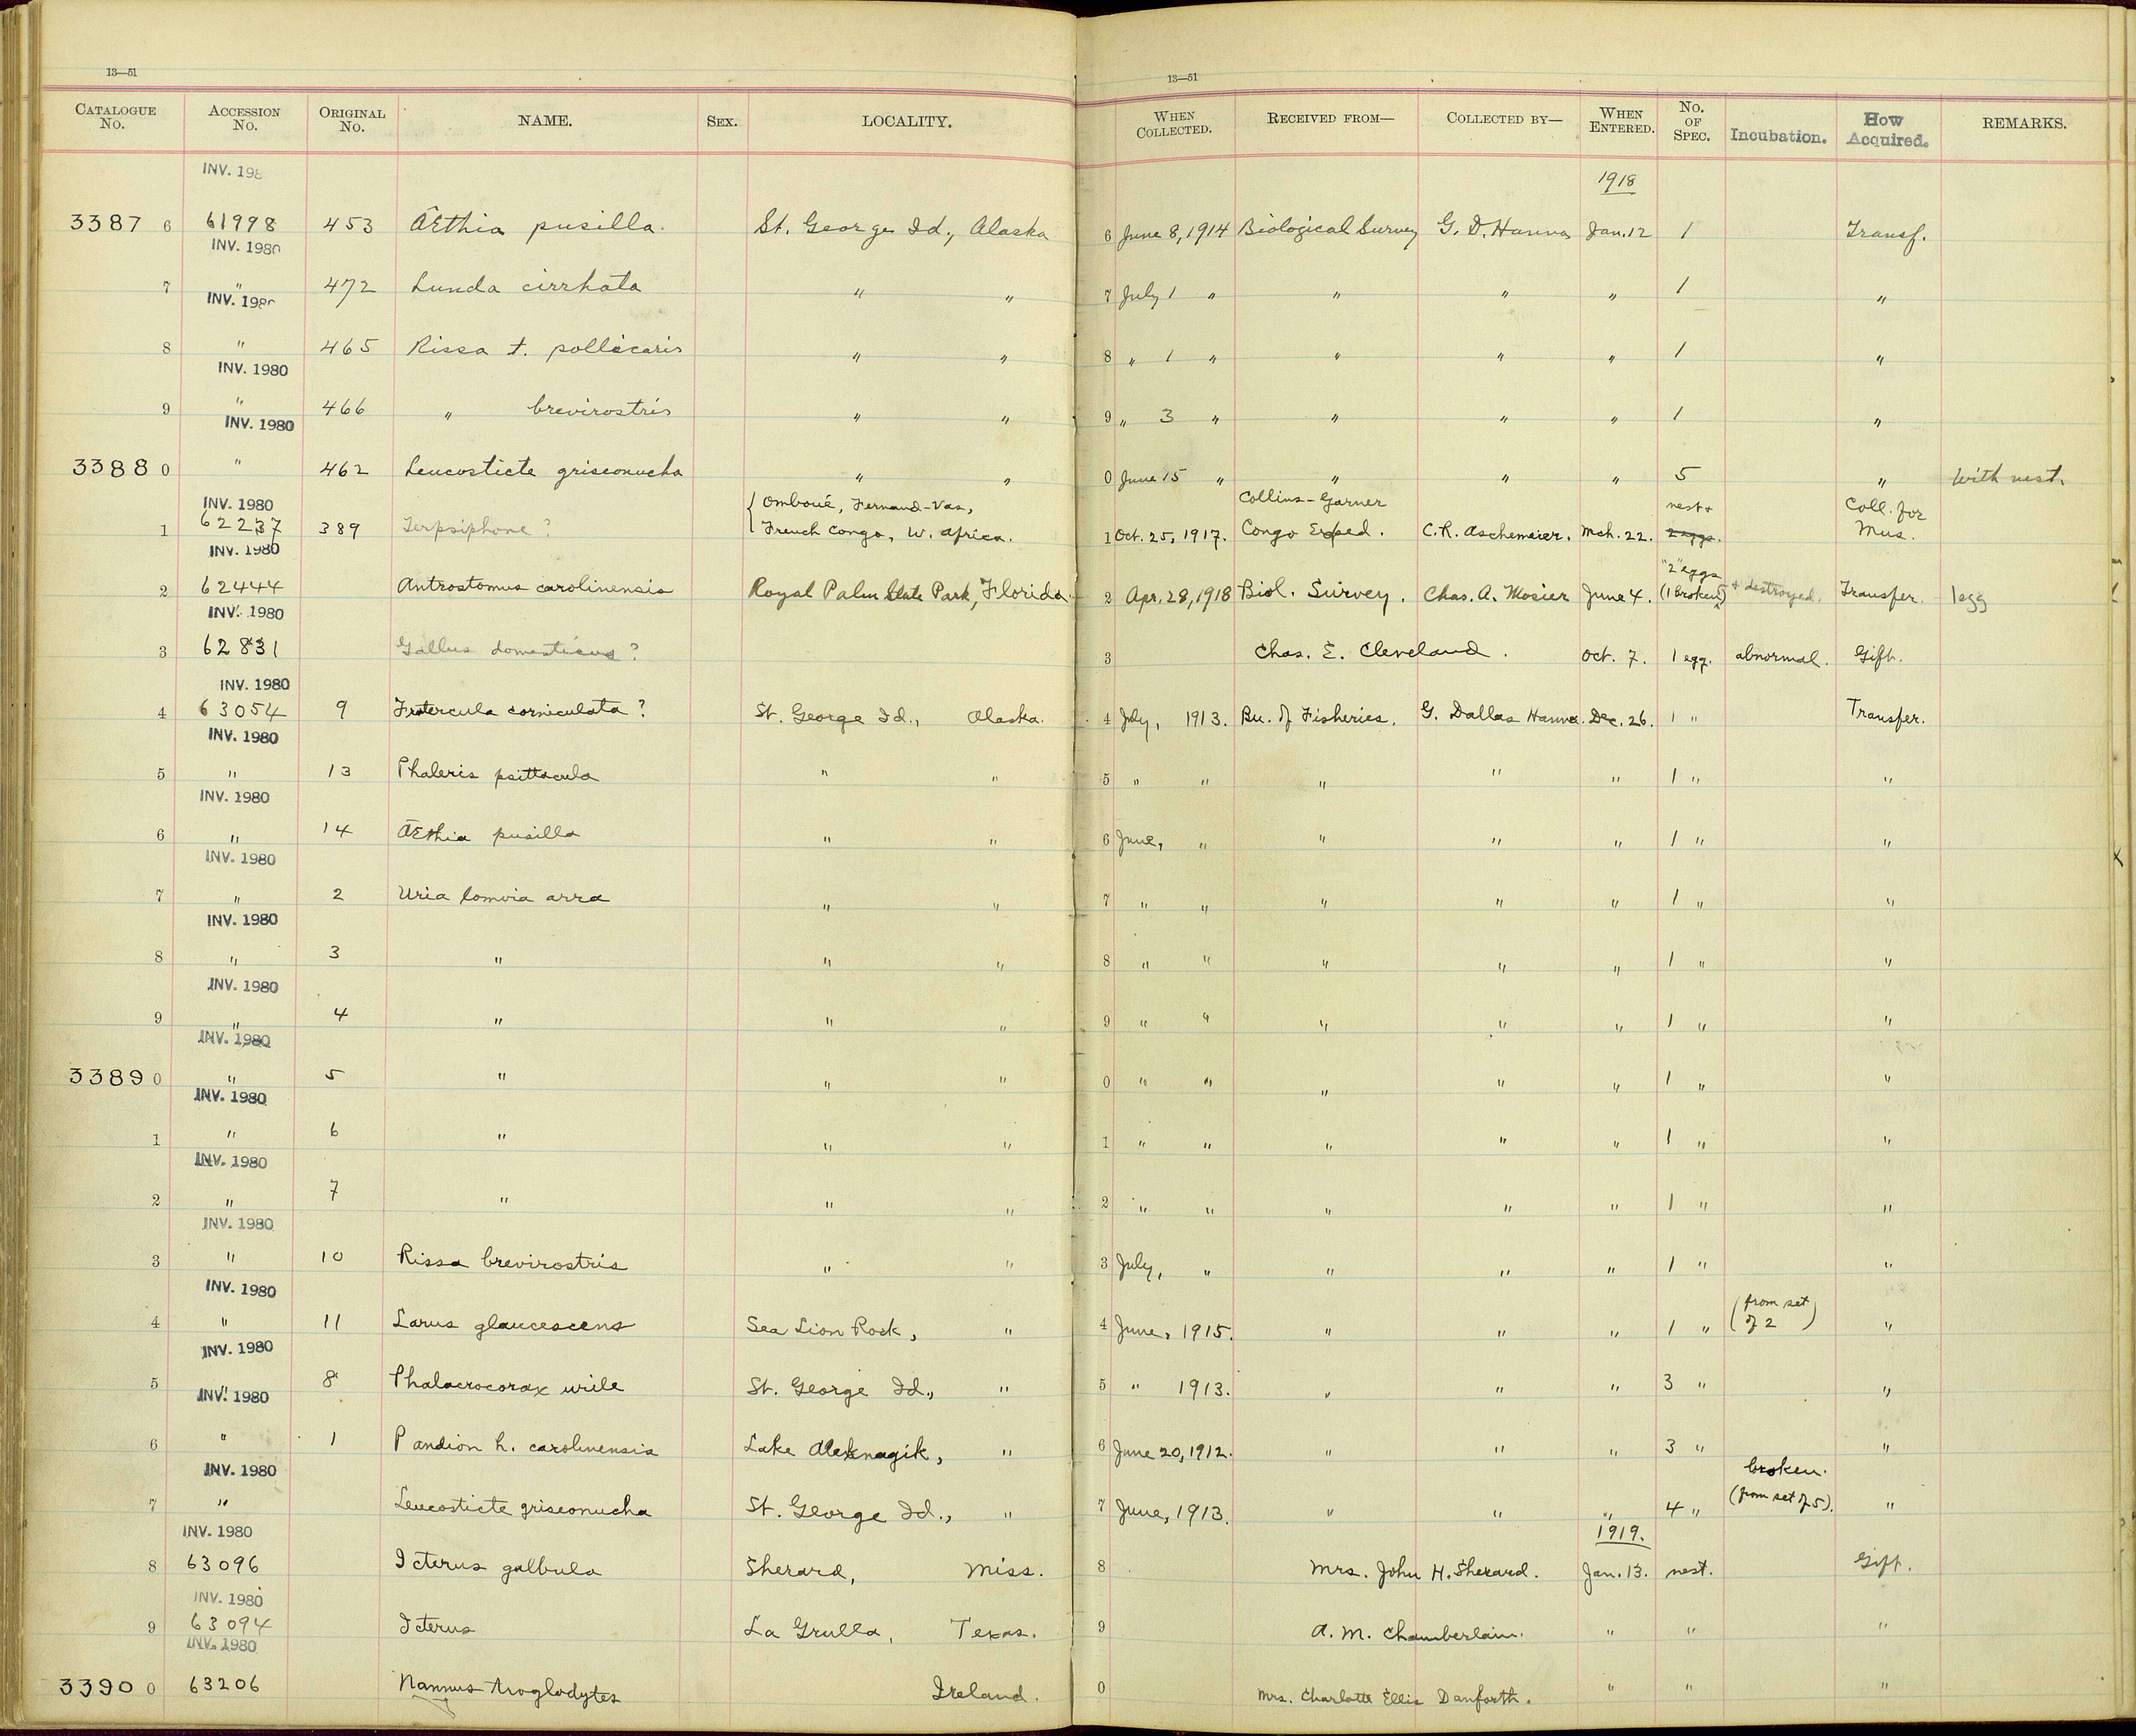 13—51
13—51
CATALOGUE No. ACCESSION No. ORIGINAL No. NAME. SEX. LOCALITY. WHEN COLLECTED. RECEIVED FROM— COLLECTED BY— WHEN ENTERED. No. OF SPEC. Incubation. How Acquired. REMARKS.
INV. 198
1918
3387 6 61998 453 Æthia pusilla. St. George Id., Alaska 6 June 8, 1914 Biological Survey G. D. Hanna Jan. 12 1 Transf.
INV. 1980
7 " 472 Lunda cirrhata " " 7 July 1 " " " " 1 "
INV. 1980
8 " 465 Rissa t. pollicaris " " 8 " 1 " " " " 1 "
INV. 1980
9 " 466 " brevirostris " " 9 " 3 " " " " 1 "
INV. 1980
3388 0 " 462 Leucosticte griseonucha " " 0 June 15 " " " " 5 " With nest.
INV. 1980 { Omboué, Fernand-Vas, Collins-Garner nest + Coll. for
1 62237 389 Terpsiphone ? French Congo, W. Africa. 1 Oct. 25, 1917. Congo Exped. C. R. Aschemeier. Mch. 22. 2 eggs. Mus.
INV. 1980 "2" eggs
2 62444 Antrostomus carolinensis Royal Palm State Park, Florida. 2 Apr. 28, 1918 Biol. Survey. Chas. A. Mosier June 4. (1 broken) + destroyed. Transfer. 1 egg
INV. 1980
3 62831 Gallus domesticus ? 3 Chas. E. Cleveland. Oct. 7. 1 egg. abnormal. Gift.
INV. 1980
4 63054 9 Fratercula corniculata ? St. George Id., Alaska. 4 July, 1913. Bu. of Fisheries. G. Dallas Hanna. Dec. 26. 1 " Transfer.
INV. 1980
5 " 13 Phaleris psittacula " " 5 " " " " " 1 " "
INV. 1980
6 " 14 Æthia pusilla " " 6 June, " " " " 1 " "
INV. 1980
7 " 2 Uria lomvia arra " " 7 " " " " " 1 " "
INV. 1980
8 " 3 " " " 8 " " " " " 1 " "
INV. 1980
9 " 4 " " " 9 " " " " " 1 " "
INV. 1980
3389 0 " 5 " " " 0 " " " " " 1 " "
INV. 1980
1 " 6 " " " 1 " " " " " 1 " "
INV. 1980
2 " 7 " " " 2 " " " " " 1 " "
INV. 1980
3 " 10 Rissa brevirostris " " 3 July, " " " " 1 " "
INV. 1980
4 " 11 Larus glaucescens Sea Lion Rock, " 4 June, 1915. " " " 1 " (from set of 2) "
INV. 1980
5 " 8 Phalacrocorax urile St. George Id., " 5 " 1913. " " " 3 " "
INV. 1980
6 " 1 Pandion h. carolinensis Lake Aleknagik, " 6 June 20, 1912. " " " 3 " "
INV. 1980 broken.
7 " Leucosticte griseonucha St. George Id., " 7 June, 1913. " " " 4 " (from set of 5). "
INV. 1980 1919.
8 63096 Icterus galbula Sherard, Miss. 8 Mrs. John H. Sherard. Jan. 13. nest. Gift.
INV. 1980
9 63094 Icterus La Grulla, Texas. 9 A. M. Chamberlain. " " "
INV. 1980
3390 0 63206 Nannus troglodytes Ireland. 0 Mrs. Charlotte Ellis Danforth. " " "